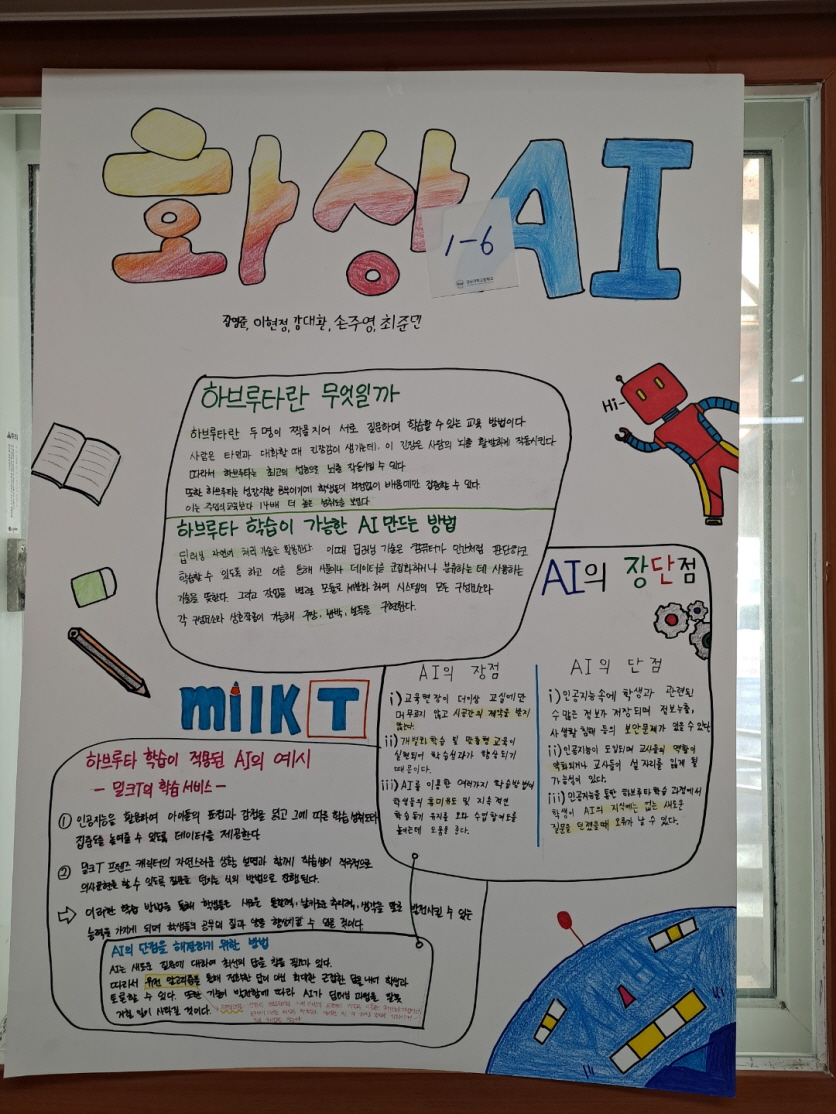 화상AI
1-6
이현정, 강대환, 손주영, 최준민
하브루타란 무엇일까
하브루타란 두 명이 짝을 지어 서로 질문하며 학습할 수 있는 교육 방법이다
사람은 타인과 대화할 때 긴장감이 생기는데, 이 긴장은 사람의 뇌를 활발하게 작동시킨다
따라서 하브루타는 최고의 성능으로 뇌를 작동시킬 수 있다
또한 하브루타는 학생들이 걱정없이 배움에만 집중할 수 있다
이는 14배 더 높은 보인다
하브루타 학습이 가능한 AI 만드는 방법
딥러닝 자연어 처리 기술을 활용한다 이때 딥러닝 기술은 컴퓨터가 인간처럼 판단하고
학습할 수 있도록 하고 이를 통해 사물이나 데이터를 군집화하거나 분류하는 데 사용하는
기술을 뜻한다. 그리고 작업을 모듈로 세분화 하여 시스템의 모든 구성요소와
각 구성요소의 상호작용이 가능해 구현한다.
Hi-
AI의 장단점
AI의 장점
i) 교육현장이 더이상 교실에만
머무르지 않고 시공간의 제약을 받지
않는다.
ii) 개별화학습 및 맞춤형 교육이
실현되어 학습성과가 향상되기
때문이다.
iii) AI를 이용한 여러가지 학습방법이
학생들의 흥미유도 및 지속적인
학습동기 유지를 도와 수업 참여도를
높이는데 도움을 준다.
AI의 단점
i) 인공지능속에 학생과 관련된
수많은 정보가 저장되며 정보누출,
사생활 침해 등의 보안문제가 있을 수 있다
ii) 인공지능이 도입되며 교사들의 역할이
약화되거나 교사들이 설 자리를 잃게 될
가능성이 있다.
iii) 인공지능을 통한 하브루타학습 과정에서
학생이 AI의 지식에는 없는 새로운
질문을 던졌을때 오류가 날 수 있다.
milk T
하브루타 학습이 적용된 AI의 예시
- 밀크T의 학습 서비스 -
① 인공지능을 활용하여 아이들의 표정과 감정을 읽고 그에 따른 학습
집중도를 높여줄 수 있도록 데이터를 제공한다
② 밀크T 프렌즈 캐릭터의 자연스러운 상황 설명과 함께 학습생이 적극적으로
의사표현을 할 수 있도록 질문을 던지는 식의 방법으로 진행된다.
⇨ 이러한 학습 방법을 통해 학생들은 새로운 통찰력, 날카로운 추리력, 생각을 말로 발전시킬 수 있는
능력을 가지게 되며 학생들의 공부의 질과 양을 향상시킬 수 있을 것이다.
AI의 단점을 해결하기 위한 방법
AI는 새로운 질문에 대하여 최선의 답을 찾을 필요가 있다.
따라서 유전 알고리즘을 통해 정확한 답이 대신 최대한 근접한 답을 내어 학생과
토론할 수 있다. 또한 기능이 발전함에 따라 AI가 딥러닝 과정을
거칠 일이 사라질 것이다.